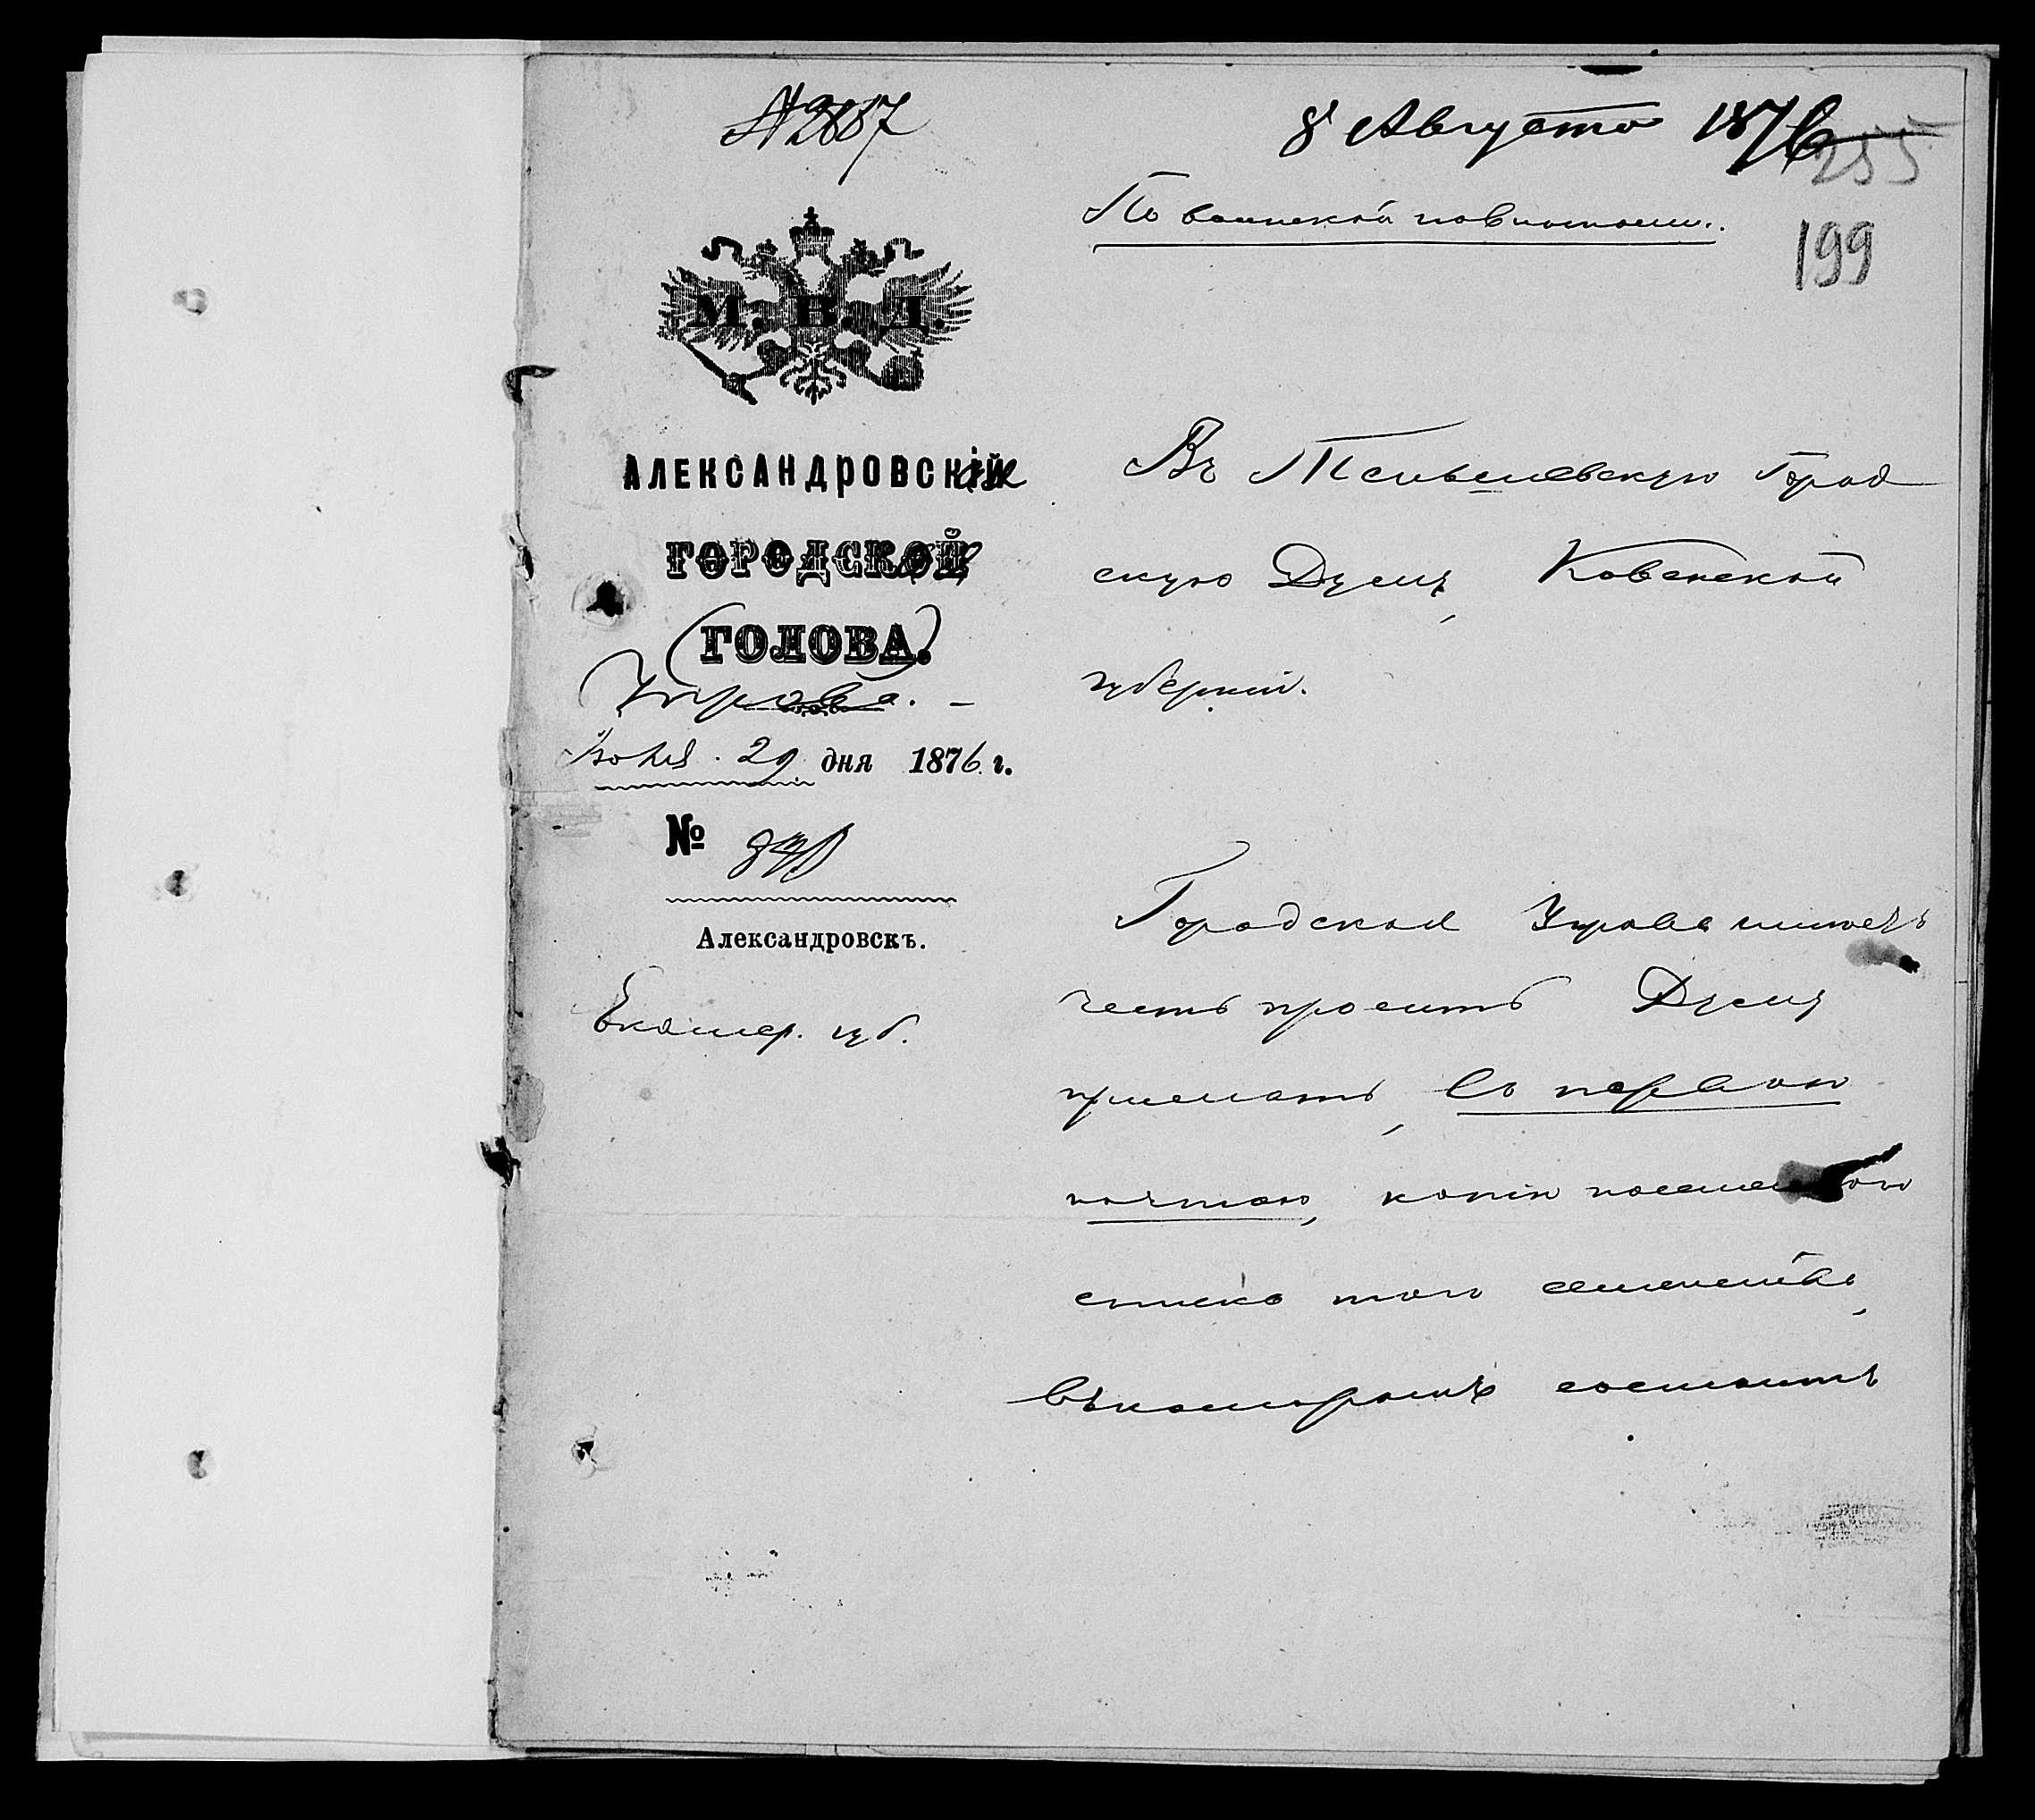 № 2887
8 Августа 1876
255
По воинской повинности.
199
М. В. Д.
АЛЕКСАНДРОВСКІЙ
ГОРОДСКОЙ
ГОЛОВА.
Управа.
Іюля 29 дня 1876 г.
№
Александровскъ.
Екатер. губ.
Въ Тельшевскую Город
скую Думу, Ковенской
губерніи.
Городская Управа имѣетъ
честь просить Думу
прислать, съ первою
почтою, копію посемейнаго
списка того семейства,
въ которомъ состоитъ